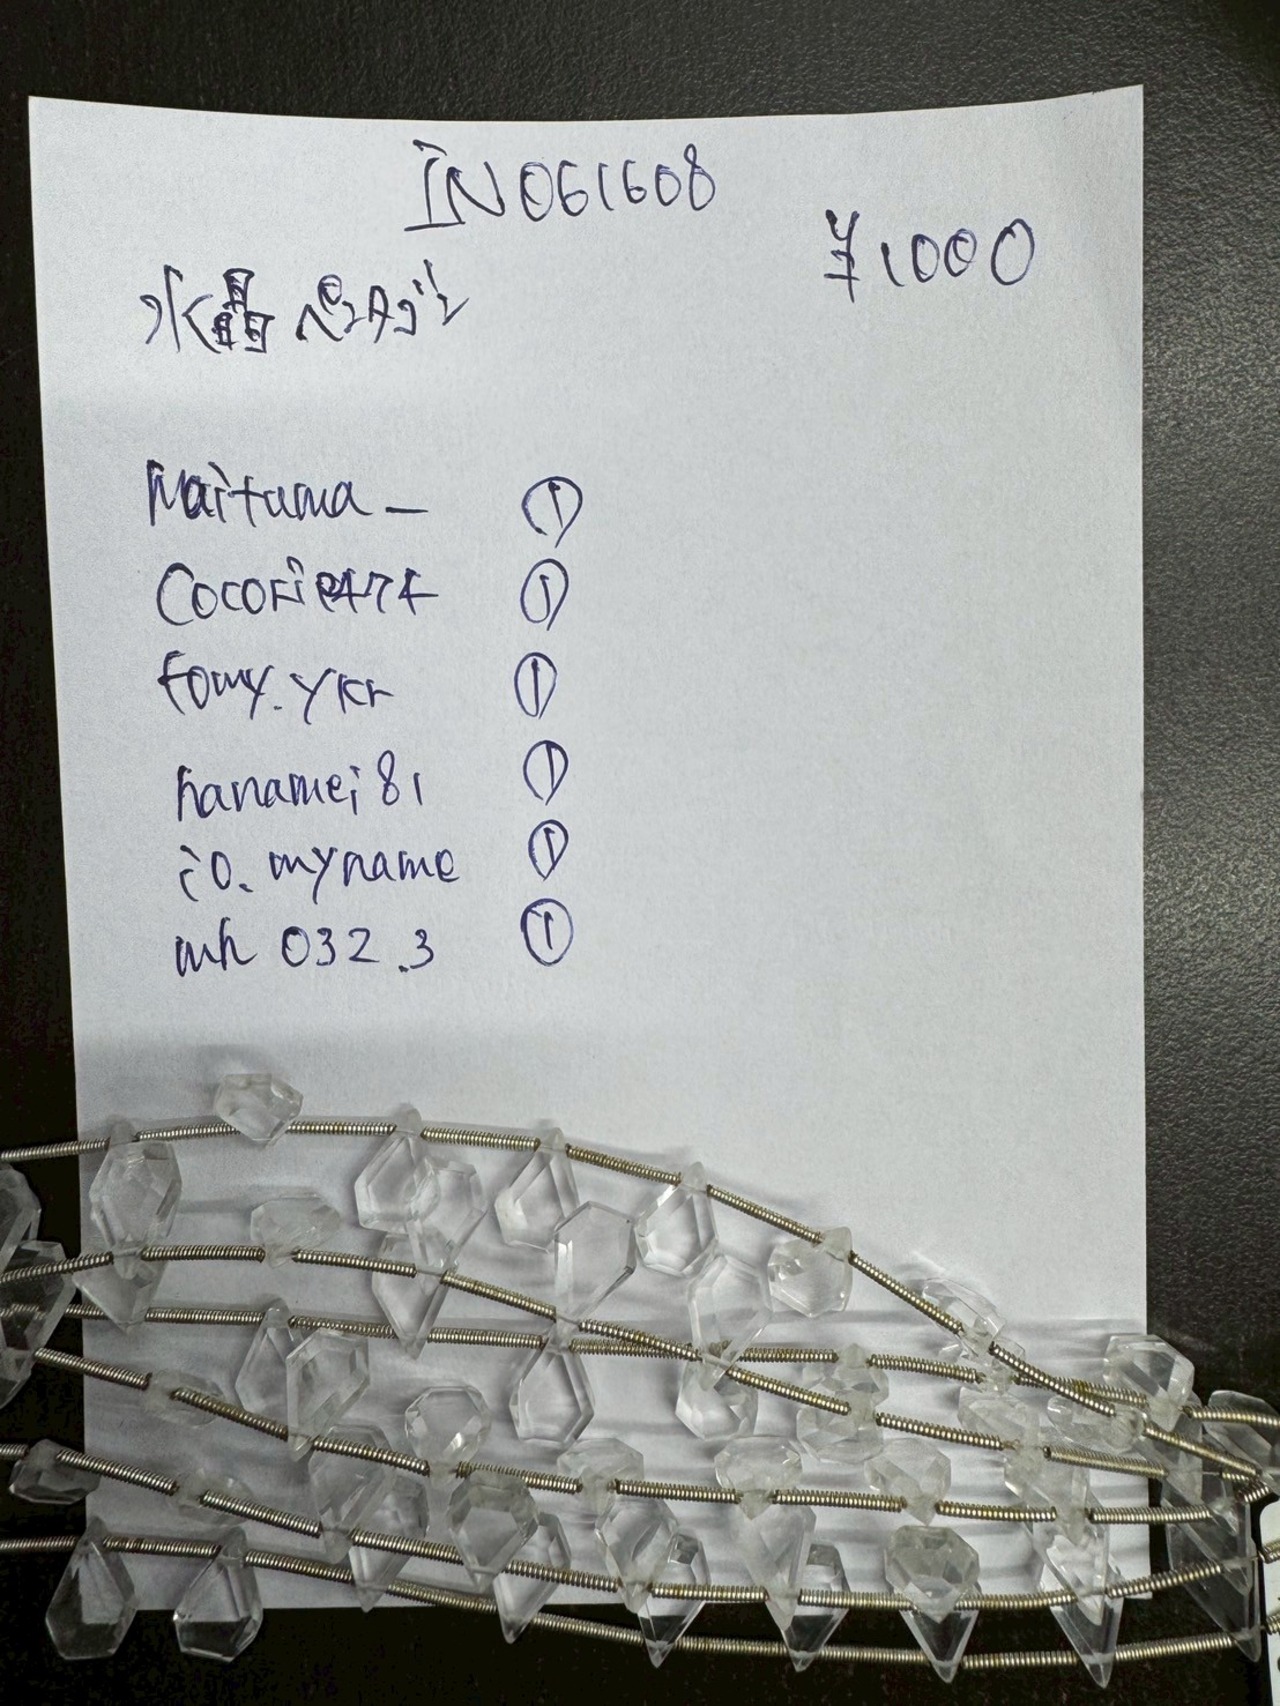 IN061608
¥1000
水晶
Maitama_ ①
Cocorie474 ①
fomy.ykr ①
hanamei81 ①
io.myname ①
mh032.3 ①